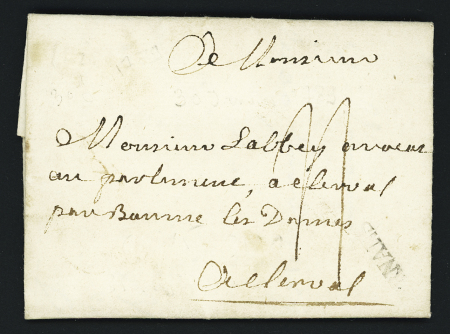 A Monsieur
Monsieur Labbey avocat
au parlement, a clerval
par Baume les Dames
A Clerval